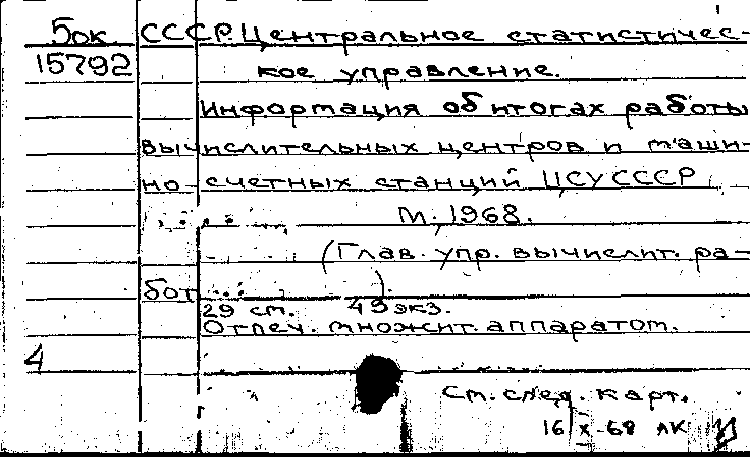 5ок. СССР. Центральное статистичес-
15792 кое управление.
Информация об итогах работы
вычислительных центров и маши-
но-счетных станций ЦСУ СССР
М., 1968.
(Глав. упр. вычислит. ра-
бот).
29 ст. 49 экз.
Отпеч. множит. аппаратом.
4
См. след. карт.
16/X-68 ЛК